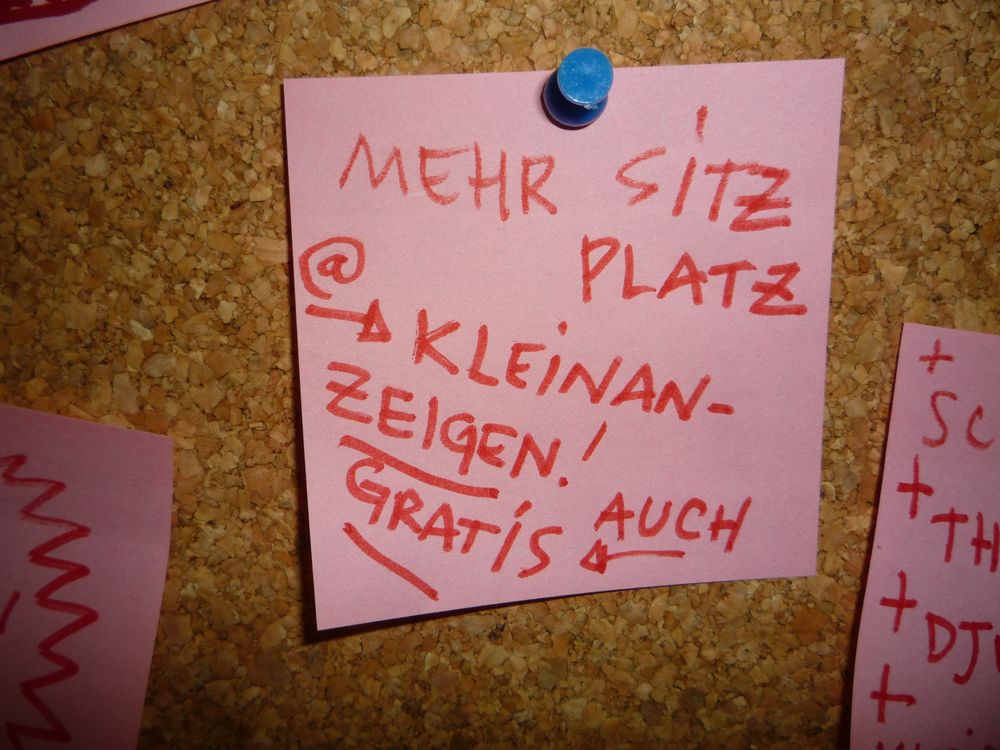 MEHR SITZ
PLATZ
@
→ KLEINAN-
ZEIGEN!
GRATIS ← AUCH
+
SC
+
TH
+
DJ
+